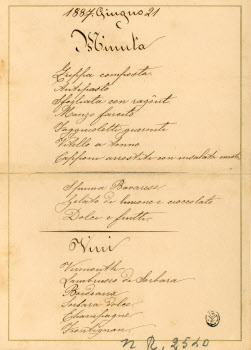 1887. Giugno 21
Minuta
Zuppa composta
Antipasto
Sfogliata con ragôut
Manzo farcito
Faggiuoletti guerniti
Vitello a tonno
Capponi arrostiti con insalata
Spuma Bavarese
Gelato di limone e cioccolato
Dolce e frutta
Vini
Vermouth
Lambrusco di Sorbara
Bordeaux
Sorbara dolce
Champagne
Frontignan
n R, 2520